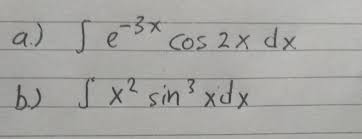 a.) ∫ e^{-3x} cos 2x dx
b.) ∫ x² sin³ x dx